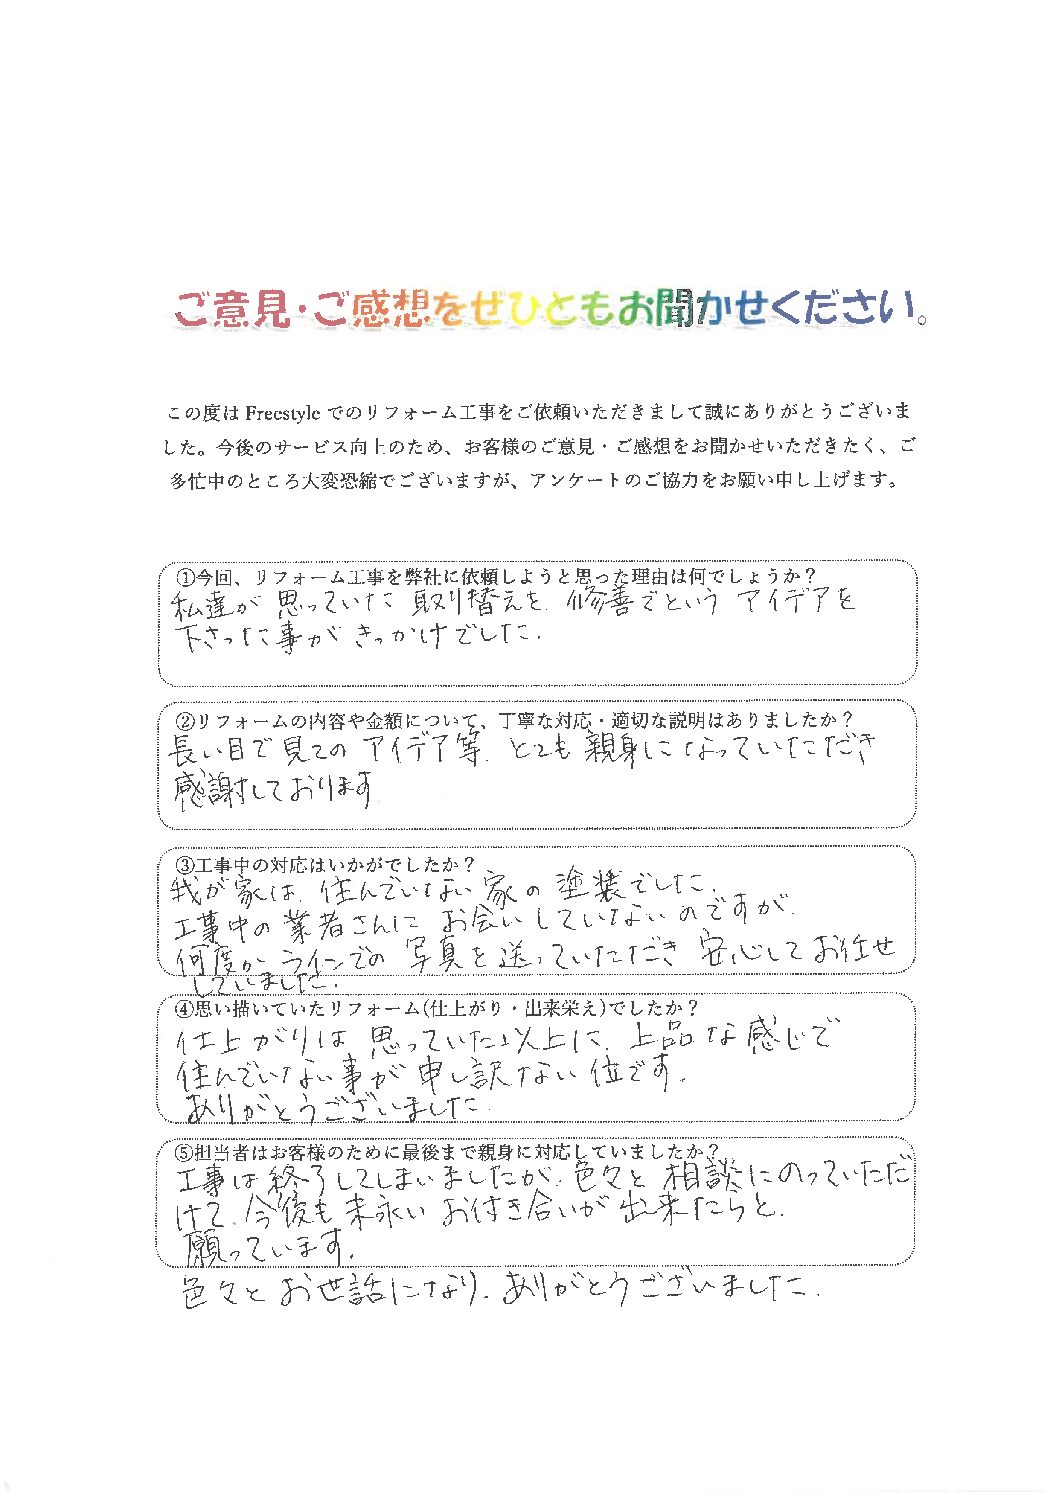 ご意見・ご感想をぜひともお聞かせください。
この度は Freestyle でのリフォーム工事をご依頼いただきまして誠にありがとうございま
した。今後のサービス向上のため、お客様のご意見・ご感想をお聞かせいただきたく、ご
多忙中のところ大変恐縮でございますが、アンケートのご協力をお願い申し上げます。
①今回、リフォーム工事を弊社に依頼しようと思った理由は何でしょうか？
私達が思っていた取り替えを、修善でというアイデアを
下さった事がきっかけでした。
②リフォームの内容や金額について、丁寧な対応・適切な説明はありましたか？
長い目で見てのアイデア等、とても親身になっていただき
感謝しております
③工事中の対応はいかがでしたか？
我が家は、住んでいない家の塗装でした。
工事中の業者さんにお会いしていないのですが、
何度かラインでの写真を送っていただき安心してお任せ
していました。
④思い描いていたリフォーム(仕上がり・出来栄え)でしたか？
仕上がりは思っていた以上に、上品な感じで
住んでいない事が申し訳ない位です。
ありがとうございました。
⑤担当者はお客様のために最後まで親身に対応していましたか？
工事は終了してしまいましたが、色々と相談にのっていただ
けて、今後も末永いお付き合いが出来たらと、
願っています。
色々とお世話になり、ありがとうございました。